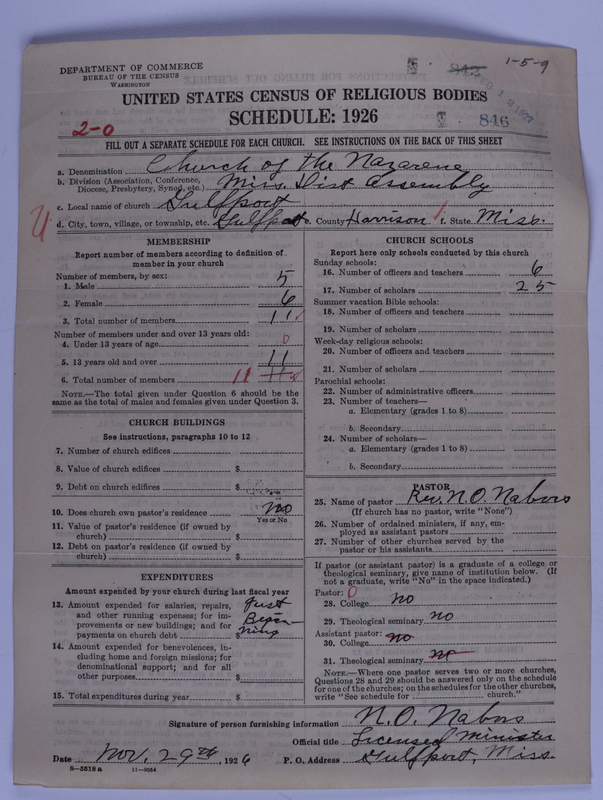 DEPARTMENT OF COMMERCE
BUREAU OF THE CENSUS
WASHINGTON
1-5-9
UNITED STATES CENSUS OF RELIGIOUS BODIES
SCHEDULE: 1926
846
2-0
FILL OUT A SEPARATE SCHEDULE FOR EACH CHURCH. SEE INSTRUCTIONS ON THE BACK OF THIS SHEET
a. Denomination Church of the Nazarene
b. Division (Association, Conference, Diocese, Presbytery, Synod, etc.) Miss. Dist Assembly
c. Local name of church Gulfport
d. City, town, village, or township, etc. Gulfport e. County Harrison f. State Miss.
MEMBERSHIP
Report number of members according to definition of
member in your church
Number of members, by sex:
1. Male 5
2. Female 6
3. Total number of members 11
Number of members under and over 13 years old:
4. Under 13 years of age 0
5. 13 years old and over 11
6. Total number of members 11 11
NOTE.—The total given under Question 6 should be
same as the total of males and females given under Question 3.
CHURCH BUILDINGS
See instructions, paragraphs 10 to 12
7. Number of church edifices
8. Value of church edifices $
9. Debt on church edifices $
10. Does church own pastor's residence no
Yes or No
11. Value of pastor's residence (if owned by
church) $
12. Debt on pastor's residence (if owned by
church) $
EXPENDITURES
Amount expended by your church during last fiscal year
13. Amount expended for salaries, repairs, Just
and other running expenses; for im-
provements or new buildings; and for Begin-
payments on church debt $ ning
14. Amount expended for benevolences, in-
cluding home and foreign missions; for
denominational support; and for all
other purposes $
15. Total expenditures during year $
CHURCH SCHOOLS
Report here only schools conducted by this church
Sunday schools:
16. Number of officers and teachers 6
17. Number of scholars 25
Summer vacation Bible schools:
18. Number of officers and teachers
19. Number of scholars
Week-day religious schools:
20. Number of officers and teachers
21. Number of scholars
Parochial schools:
22. Number of administrative officers
23. Number of teachers—
a. Elementary (grades 1 to 8)
b. Secondary
24. Number of scholars—
a. Elementary (grades 1 to 8)
b. Secondary
PASTOR
25. Name of pastor Rev. N.O. Nabors
(If church has no pastor, write "None")
26. Number of ordained ministers, if any, em-
ployed as assistant pastors
27. Number of other churches served by the
pastor or his assistants
If pastor (or assistant pastor) is a graduate of a college or
theological seminary, give name of institution below. (If
not a graduate, write "No" in the space indicated.)
Pastor: 0
28. College no
29. Theological seminary no
Assistant pastor:
30. College no
31. Theological seminary no
NOTE.—Where one pastor serves two or more churches,
Questions 28 and 29 should be answered only on the schedule
for one of the churches; on the schedules for the other churches,
write "See schedule for church."
Signature of person furnishing information N.O. Nabors
Official title Licensed Minister
Date Nov. 29th, 1926 P. O. Address Gulfport, Miss.
8-5518a 11-9084